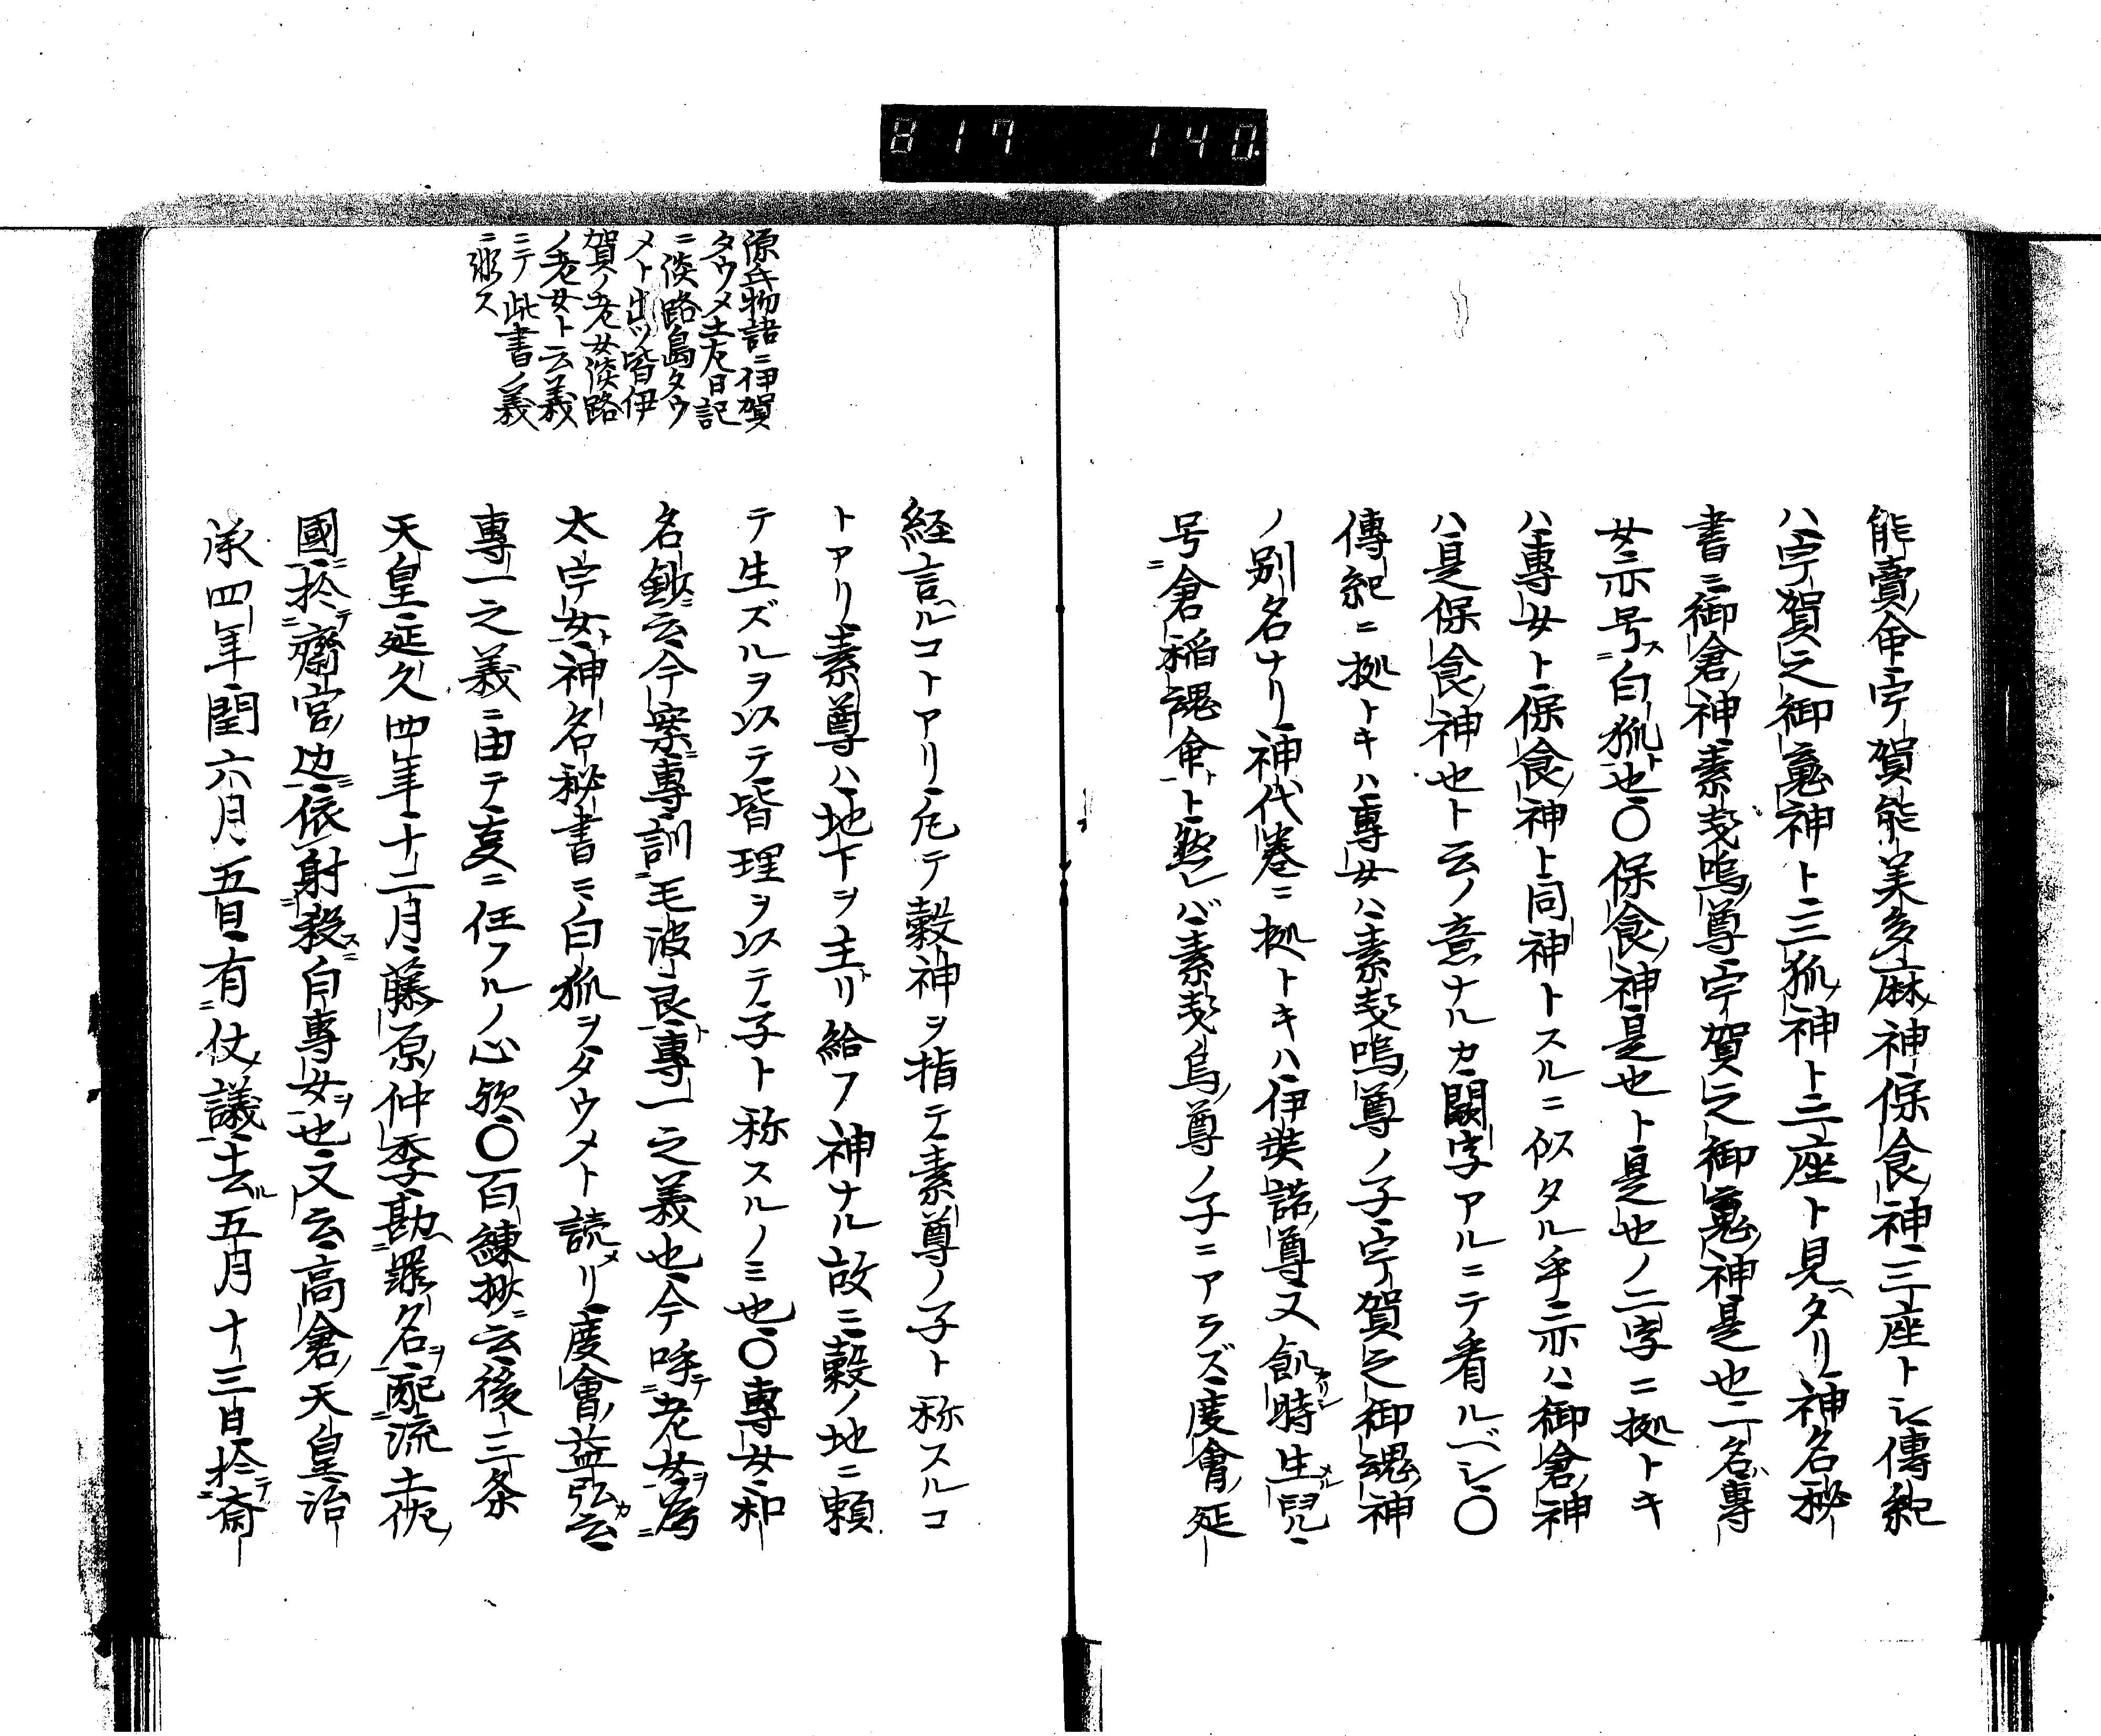 817 140
能賣命宇賀能美多麻神保食神三座トシ傳紀
ハ宇賀之御䰟神ト三狐神ト二座ト見ヘタリ神名秘
書ニ御倉神素戔嗚尊宇賀之御䰟神是也二名ハ專
女亦号ス二白狐ト一也〇保食神是也ト是也ノ二字ニ拠トキ
ハ專女ト保食神ト同神トスルニ似タル乎亦ハ御倉神
ハ是保食神也ト云ノ意ナルカ闕字アルニテ看ルベシ〇
傳紀ニ拠トキハ專女ハ素戔嗚尊ノ子宇賀之御魂神
ノ別名ナリ神代巻ニ拠トキハ伊弉諾尊又飢時生兒
号倉稲魂命ト然レバ素戔烏尊ノ子ニアラズ度會延
経言ルコトアリ凡テ穀神ヲ指テ素尊ノ子ト称スルコ
トアリ素尊ハ地下ヲ主リ給フ神ナル故ニ穀ノ地ニ頼
テ生ズルヲ以テ皆理ヲ以テ子ト称スルノミ也〇專女和
名鈔ニ云今案ニ專訓毛波良ト專一之義也今呼テ老女ヲ為
太宇女ト神名秘書ニ白狐ヲタウメト読メリ度會益弘カ云
專一之義ニ由テ妄ニ任フルノ心歟〇百練抄ニ云後三条
天皇延久四年十二月藤原仲季勘罪名ヲ配流土佐
國ニ於テ齋宮辺ニ依射殺ス白專女ヲ也又云高倉天皇治
承四年閏六月五日有仗議去ル五月十三日於テ斎
源氏物語ニ伊賀
タウメ土左日記
ニ淡路島タウ
メト出ツ皆伊
賀ノ老女淡路
ノ老女ト云義
ニテ此書ノ義
ニ非ス